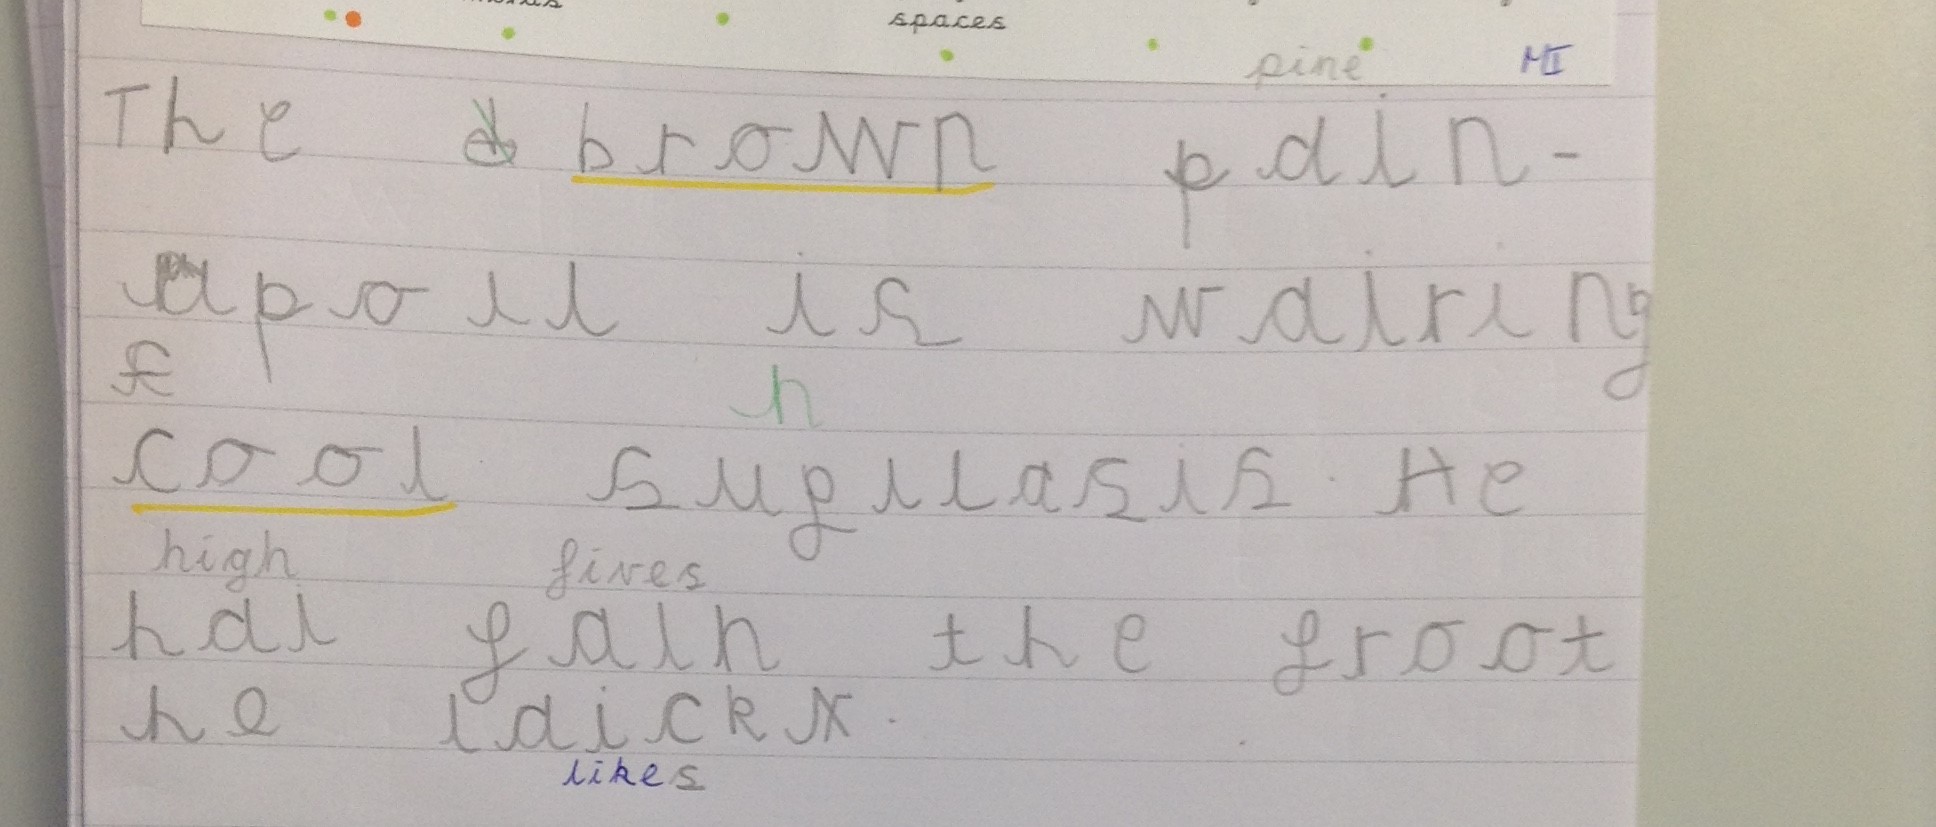 spaces
pine MI
The brown pain-
apoll is wairing
f h
cool suglasis. He
high fives
hai fain the froot
he laickx.
likes